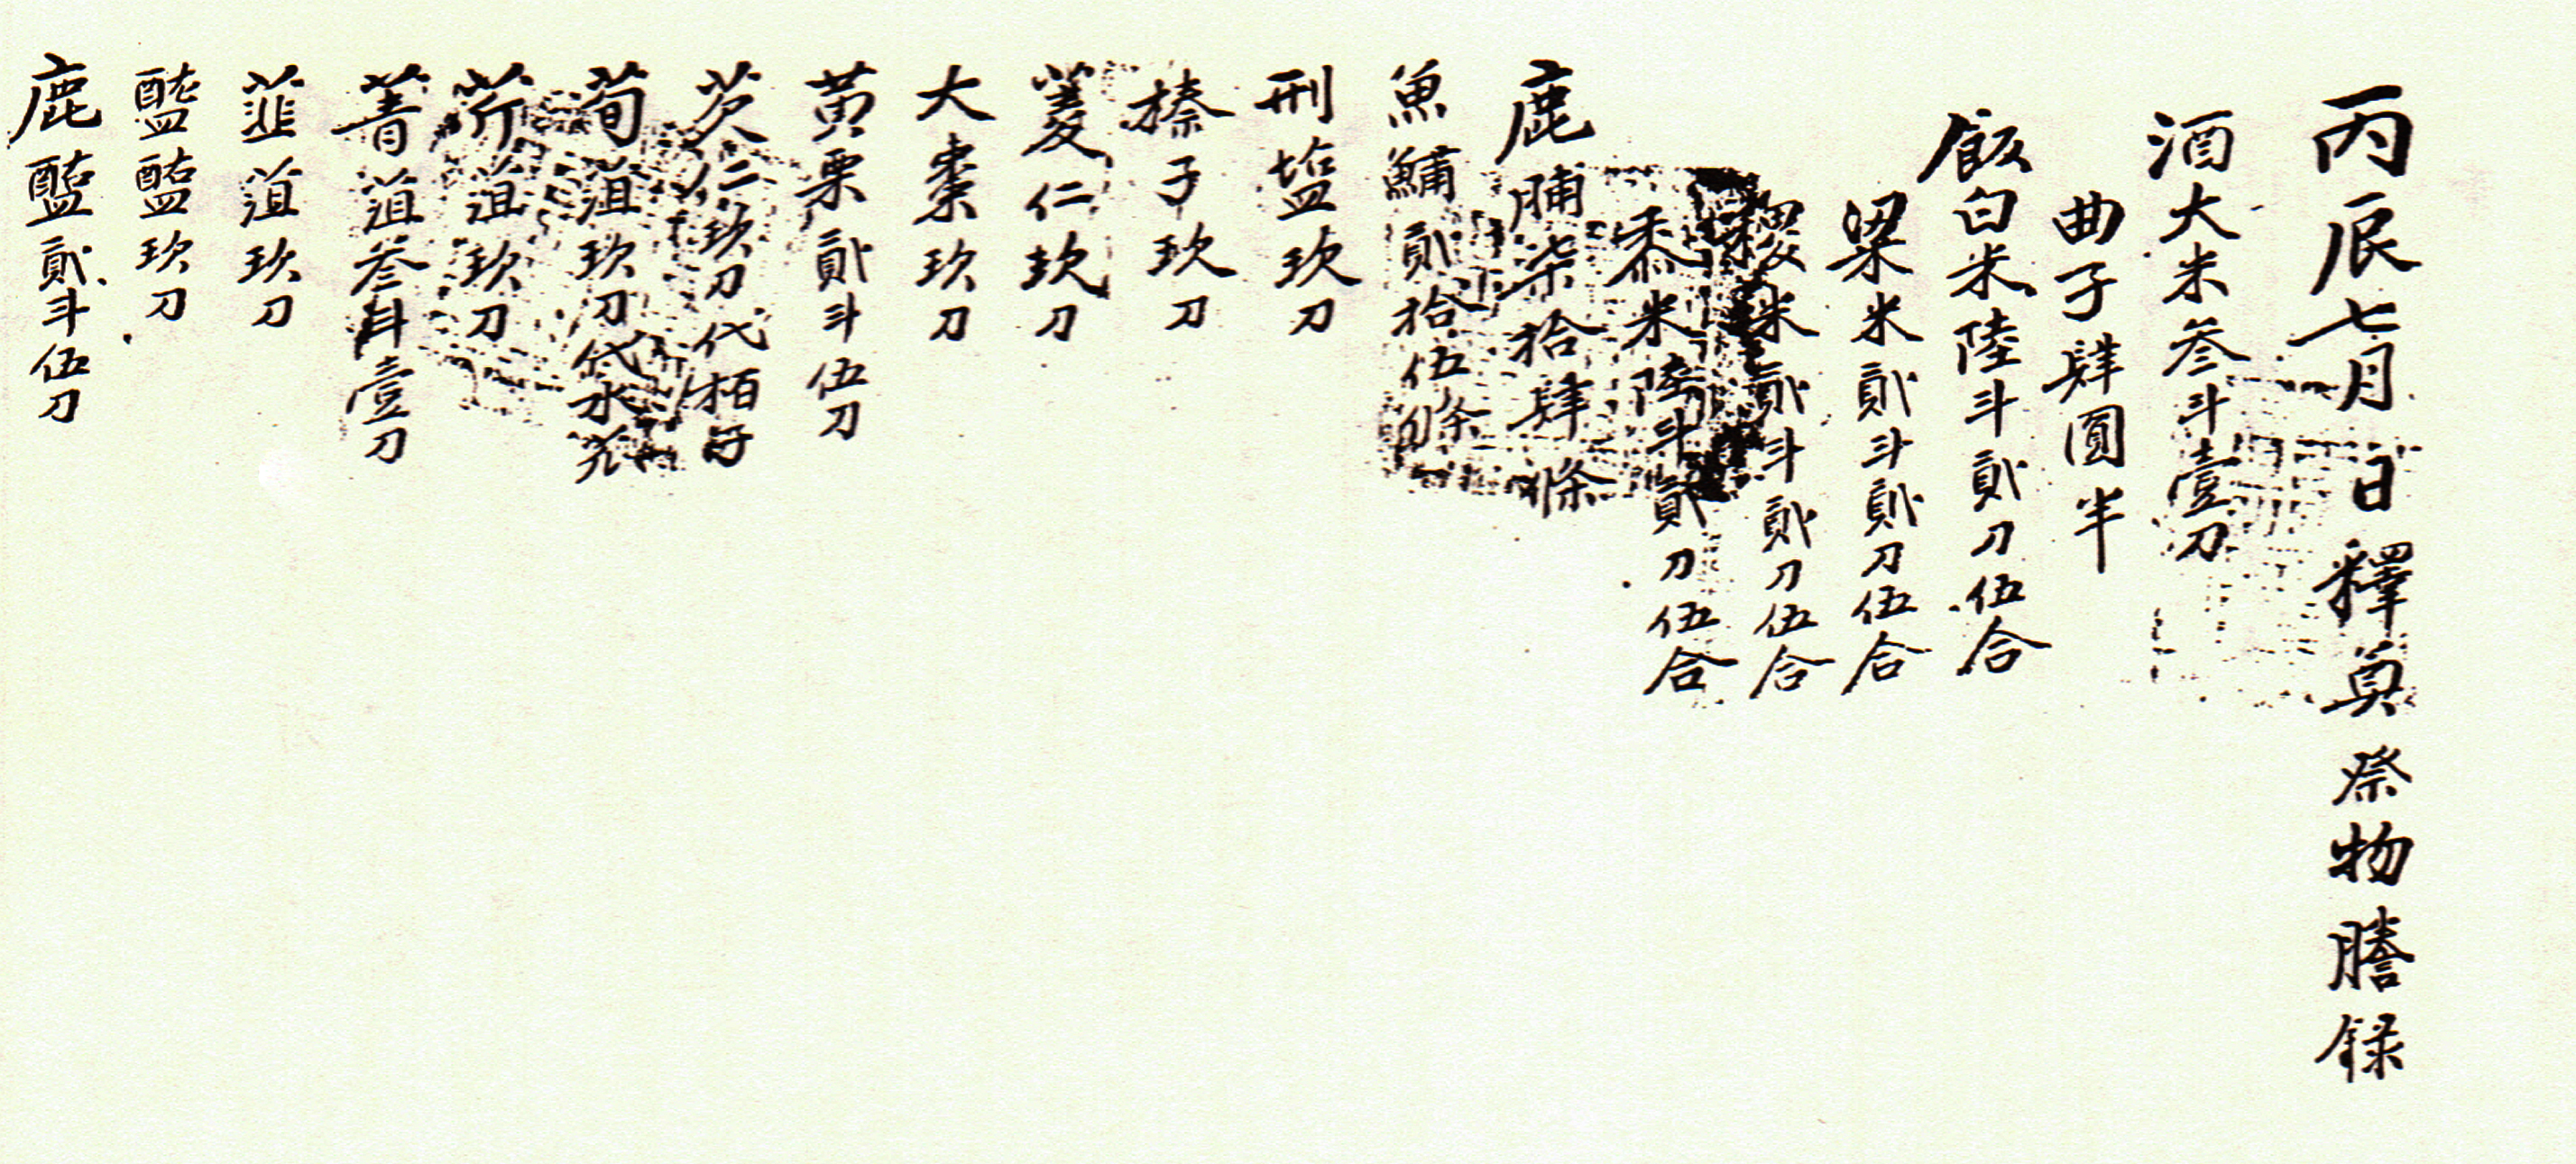 丙辰七月 日釋奠祭物謄錄
酒大米叄斗壹刀
曲子肆圓半
飯白米陸斗貳刀伍合
粱米貳斗貳刀伍合
稷米貳斗貳刀伍合
黍米陸斗貳刀伍合
鹿脯柒拾肆條
魚鱐貳拾伍條
刑塩玖刀
榛子玖刀
菱仁玖刀
大棗玖刀
黃栗貳斗伍刀
芡仁玖刀代栢子
荀菹玖刀代水芹
芹菹玖刀
菁菹叄斗壹刀
韮菹玖刀
醓醢玖刀
鹿醢貳斗伍刀